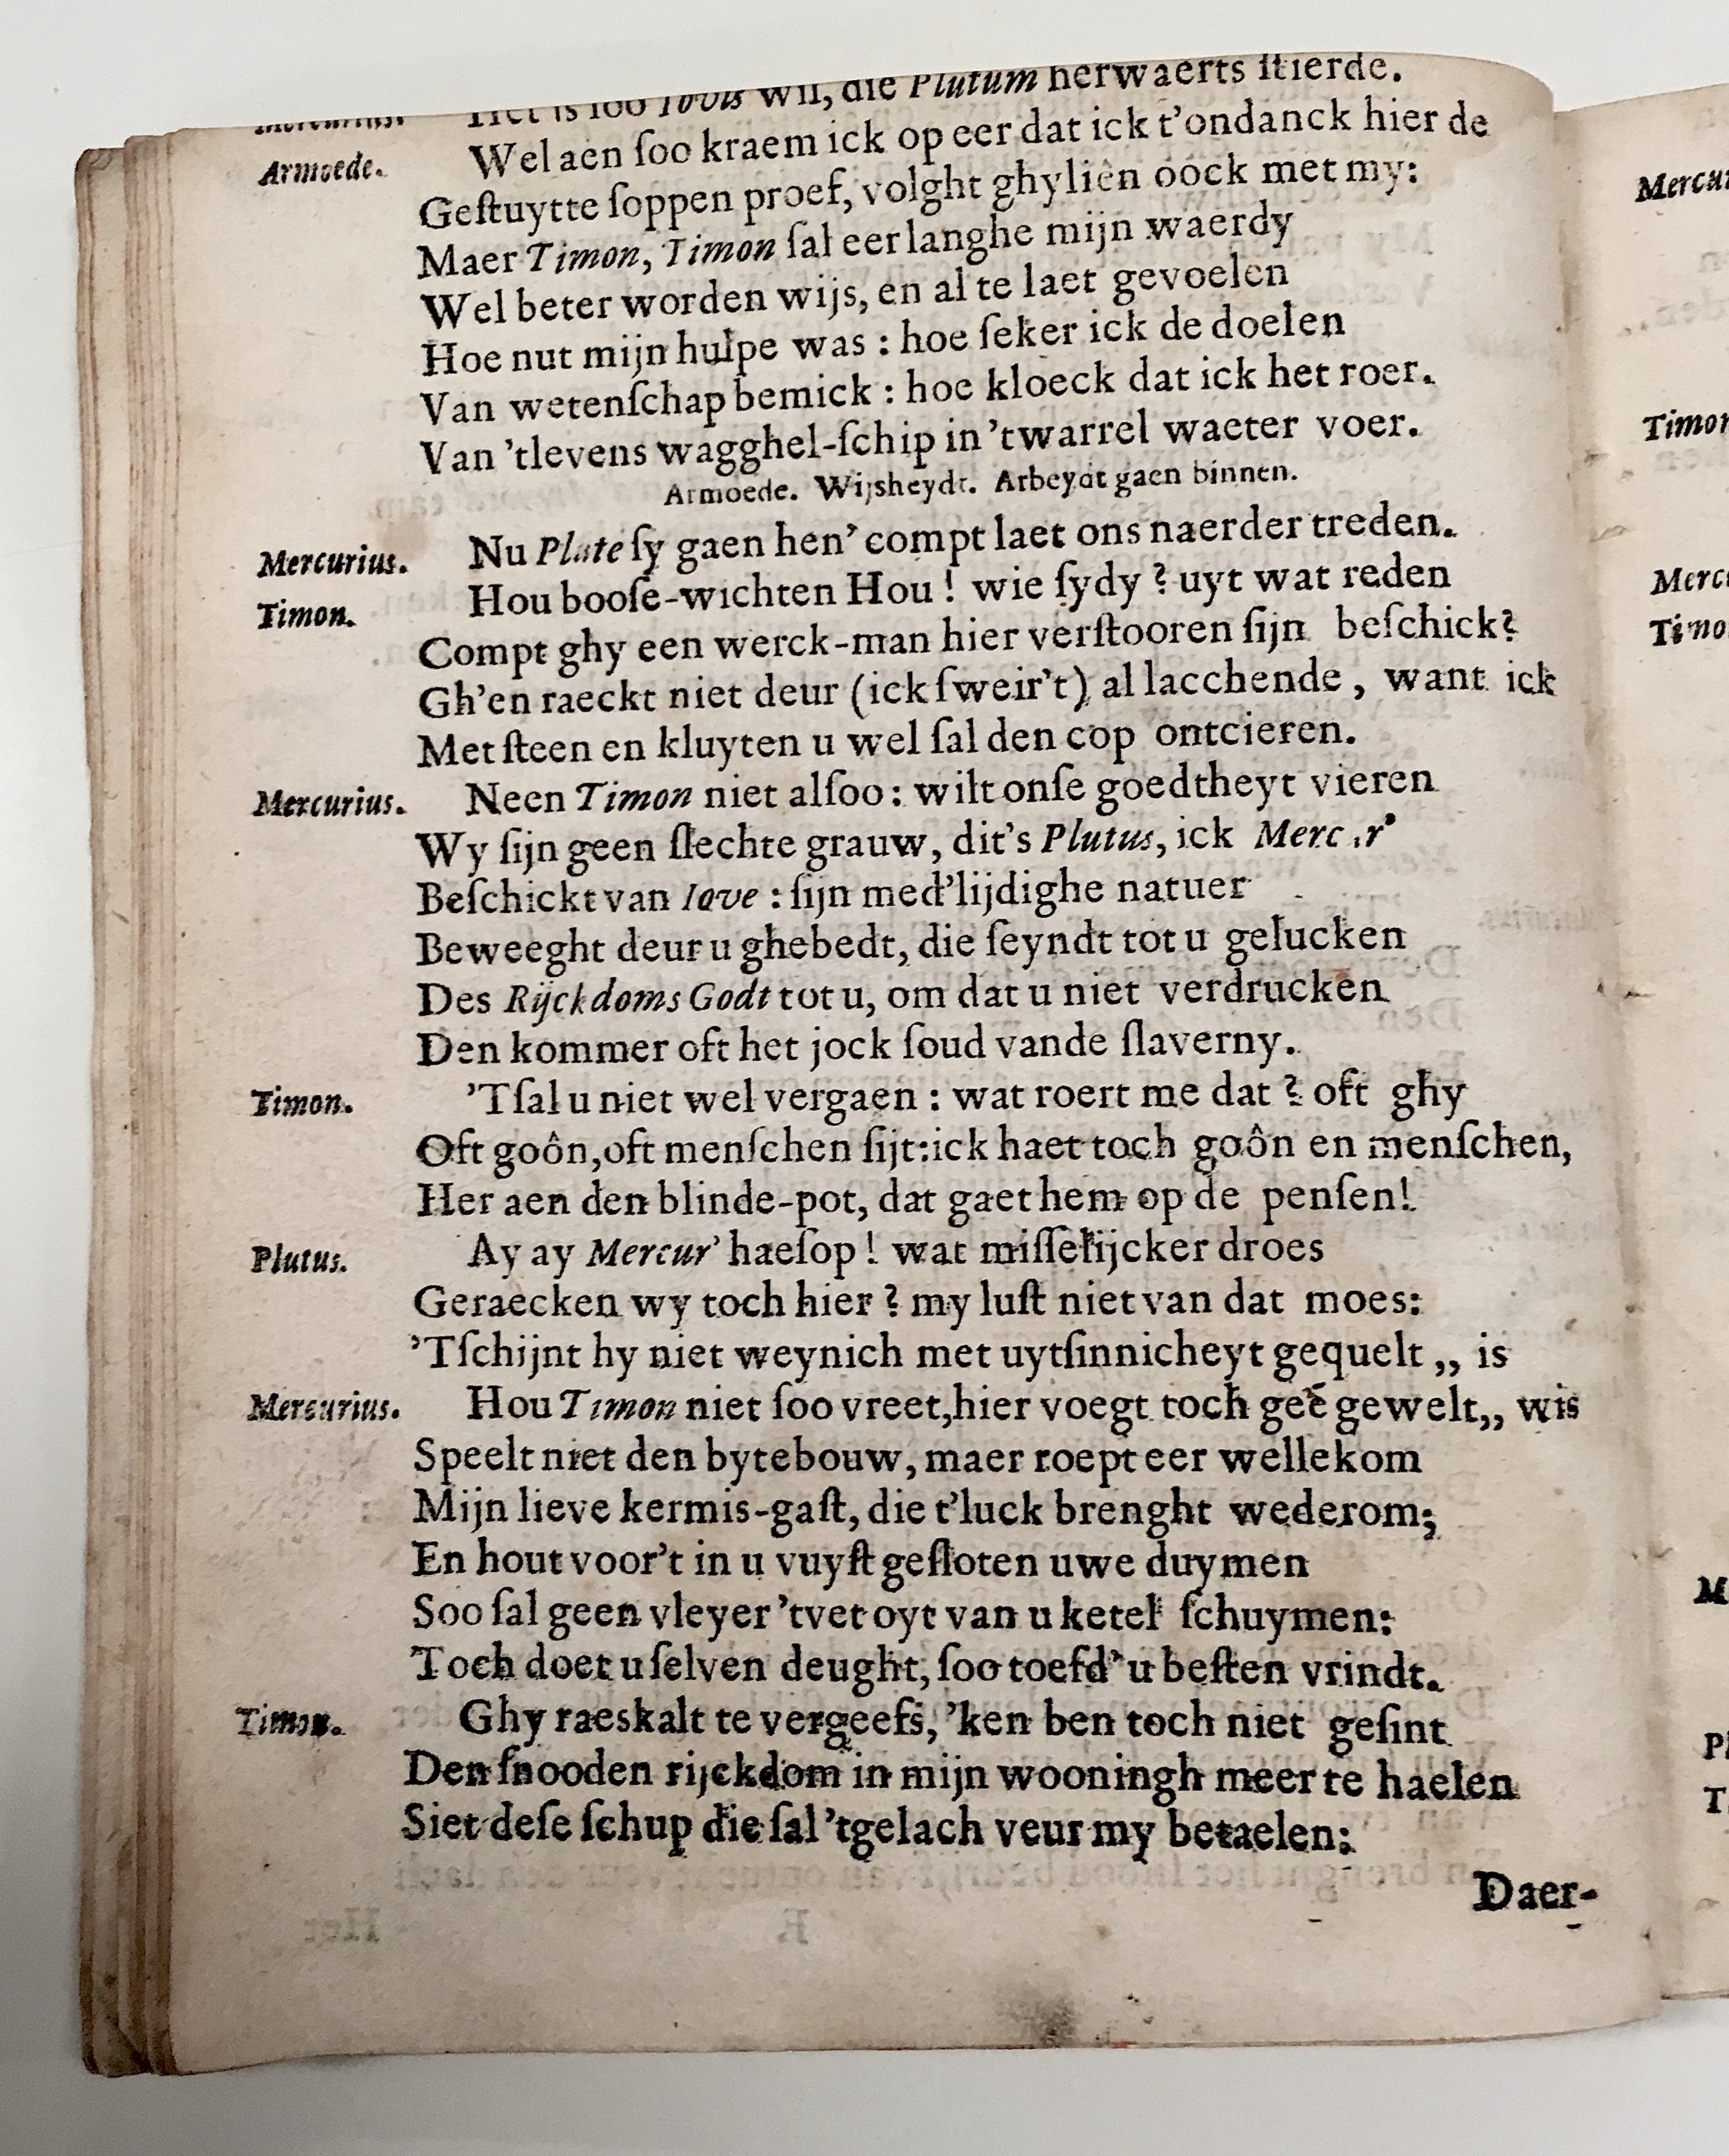 Mercurius. Het is soo Iovis wil, die Plutum herwaerts stierde.
Armoede. Wel aen ſoo kraem ick op eer dat ick t'ondanck hier de
Geſtuytte ſoppen proef, volght ghyliên oock met my:
Maer Timon, Timon ſal eer langhe mijn waerdy
Wel beter worden wijs, en al te laet gevoelen
Hoe nut mijn hulpe was : hoe ſeker ick de doelen
Van wetenſchap bemick : hoe kloeck dat ick het roer.
Van 'tlevens wagghel-ſchip in 'twarrel waeter voer.
Armoede. Wijsheydt. Arbeydt gaen binnen.
Mercurius. Nu Plute ſy gaen hen' compt laet ons naerder treden.
Timon. Hou booſe-wichten Hou ! wie ſydy ? uyt wat reden
Compt ghy een werck-man hier verſtooren ſijn beſchick?
Gh'en raeckt niet deur (ick ſweir't) al lacchende , want ick
Met ſteen en kluyten u wel ſal den cop ontcieren.
Mercurius. Neen Timon niet alſoo : wilt onſe goedtheyt vieren
Wy ſijn geen ſlechte grauw, dit's Plutus, ick Merc r'
Beſchickt van Iove : ſijn med'lijdighe natuer
Beweeght deur u ghebedt, die ſeyndt tot u gelucken
Des Rijckdoms Godt tot u, om dat u niet verdrucken
Den kommer oft het jock ſoud vande ſlaverny.
Timon. 'Tſal u niet wel vergaen : wat roert me dat ? oft ghy
Oft goôn,oft menſchen ſijt:ick haet toch goôn en menſchen,
Her aen den blinde-pot, dat gaet hem op de penſen!
Plutus. Ay ay Mercur' haeſop ! wat miſſelijcker droes
Geraecken wy toch hier ? my luſt niet van dat moes:
'Tſchijnt hy niet weynich met uytſinnicheyt gequelt ,, is
Mercurius. Hou Timon niet ſoo vreet,hier voegt toch geẽ gewelt,, wis
Speelt niet den bytebouw, maer roept eer wellekom
Mijn lieve kermis-gaſt, die t'luck brenght wederom;
En hout voor't in u vuyſt geſloten uwe duymen
Soo ſal geen vleyer 'tvet oyt van u ketel ſchuymen:
Toch doet u ſelven deught, ſoo toefd' u beſten vrindt.
Timon. Ghy raeskalt te vergeefs, 'ken ben toch niet geſint
Den ſnooden rijckdom in mijn wooningh meer te haelen
Siet deſe ſchup die ſal 'tgelach veur my betaelen:
Daer-
Mercur
Timon
Merc
Timo
M
Pl
T